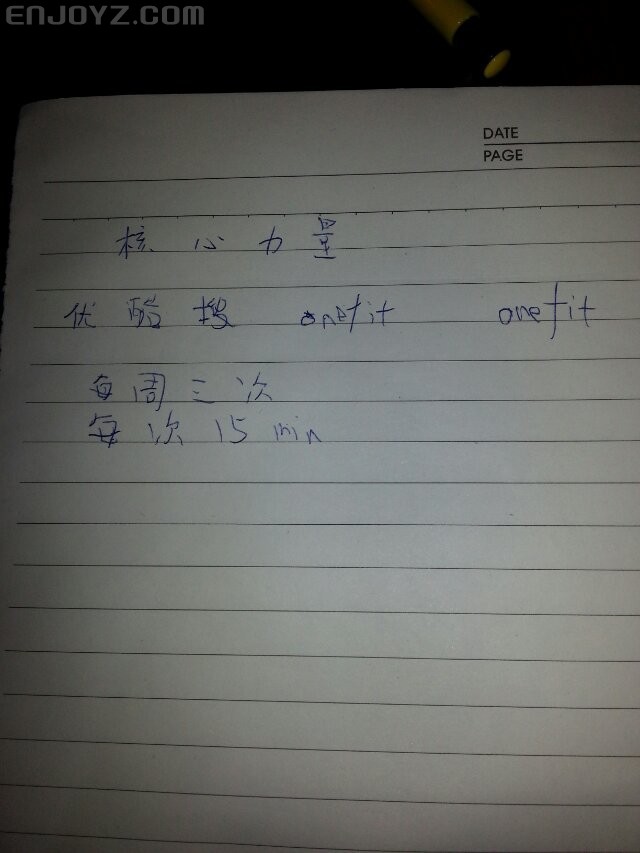 ENJOYZ.COM
DATE
PAGE
核心力量
优酷搜 onefit onefit
每周三次
每次15min